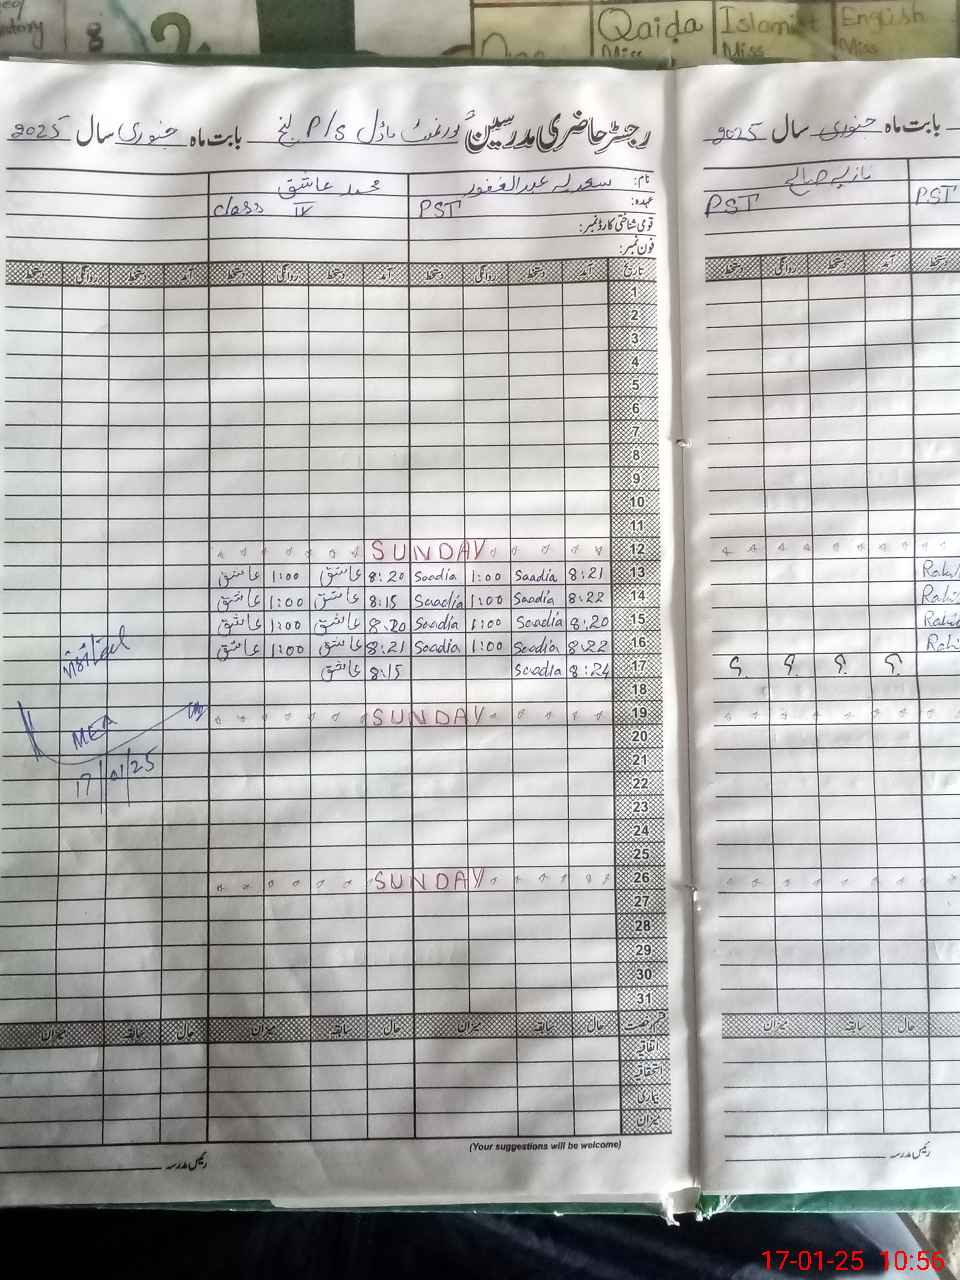 8
Qaida
Islamiat
English
Miss
Miss
Miss
رجسٹر حاضری مدرسین گورنمنٹ ماڈل P/S بابت ماہ جنوری سال 2025
نام: سعدیہ عبدالغفور محمد عاشق
عہدہ: PST class IV
قومی شناختی کارڈ نمبر:
فون نمبر:
تاریخ آمد دستخط روانگی دستخط آمد دستخط روانگی دستخط آمد دستخط روانگی دستخط
1
2
3
4
5
6
7
8
9
10
11
12 SUNDAY
13 8:21 Saadia 1:00 Saadia 8:20 عاشق 1:00 عاشق
14 8:22 Saadia 1:00 Saadia 8:15 عاشق 1:00 عاشق
15 8:20 Saadia 1:00 Saadia 8:20 عاشق 1:00 عاشق
16 8:22 Saadia 1:00 Saadia 8:21 عاشق 1:00 عاشق
17 8:24 Saadia 8:15 عاشق
18
19 SUNDAY
20
21
22
23
24
25
26 SUNDAY
27
28
29
30
31
Visited
MEA
17/01/25
قسم رخصت حال سابقہ میزان حال سابقہ میزان حال سابقہ میزان
اتفاقیہ
استحقاقیہ
بیماری
میزان
(Your suggestions will be welcome)
رئیس مدرسہ
بابت ماہ جنوری سال 2025
PST PST
دستخط آمد دستخط روانگی دستخط
؟ ؟ ؟ ؟
حال سابقہ میزان
رئیس مدرسہ
17-01-25 10:56